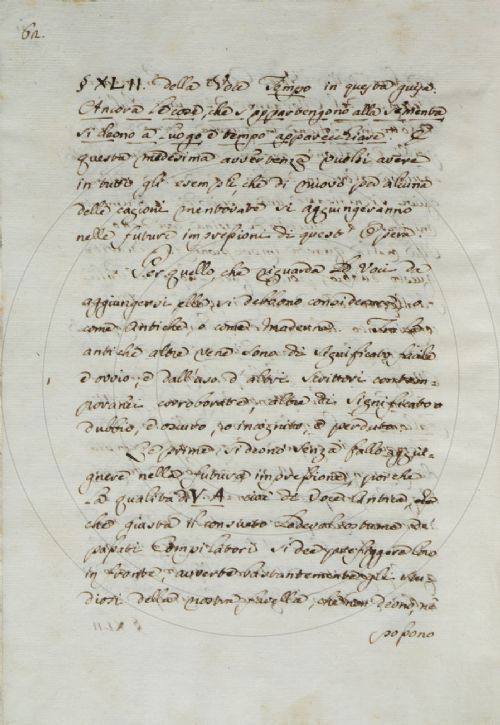 62.
§ XLII. della Voce Tempo in questa guisa.
Ancora le cose, che s'appartengono alla Sementa
si deono a luogo e tempo apparecchiare. E
questa medesima avvertenza puossi avere
in tutti gli esempli che di nuovo per alcuna
delle cagioni mentovate si aggiungeranno
nelle future impressioni di quest' Opera.
Per quello, che riguarda le Voci da
aggiungersi elle si debbono considerare, o
come antiche, o come moderne. le
antiche altre sono di significato facile
e ovvio, e dall'uso d'altri Scrittori contem=
poranei corroborate, altre di significato
dubbio, oscuro, o incognito, e perduto.
Le prime si deono senza fallo aggiu=
gnere nella futura impressione, poiche
la qualità di V. A. cioè di Voce Antica,
che giusta il consueto lodevol costume de'
passati Compilatori si dee prefiggere loro
in fronte, avverte bastantemente gli Stu=
diosi della nostra favella, che non deono, nè
possono